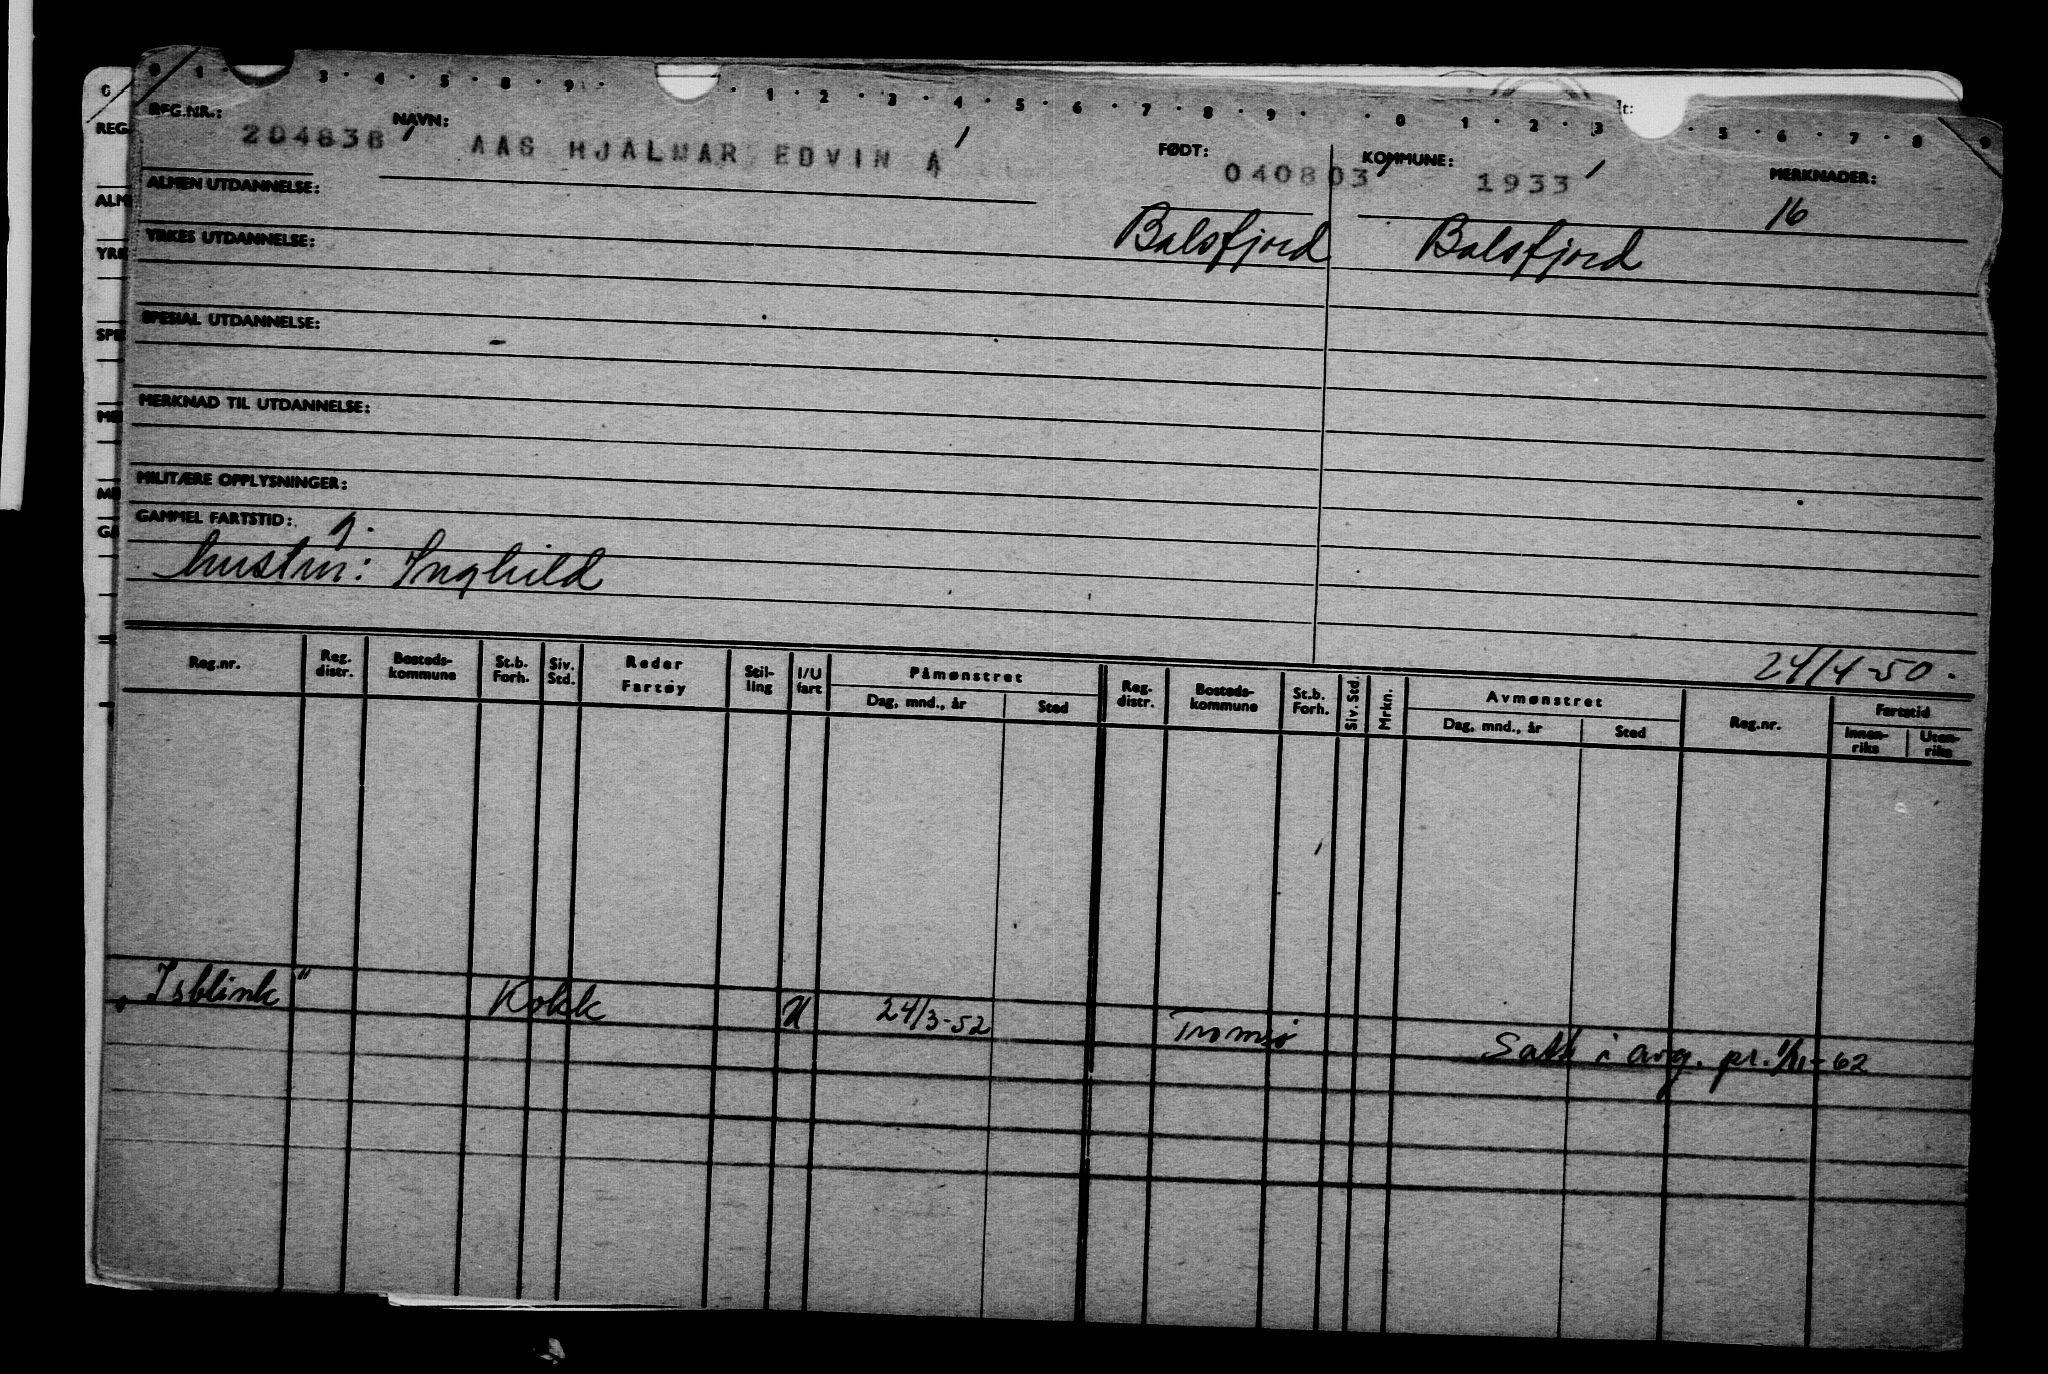 0 1 · 3 · 4 · 5 · 8 · 9 · · 1 · 2 · 3 · 4 · 5 · 6 · 7 · 8 · 9 · · 0 1 · 2 · 3 · 5 · 6 · 7 · 8 9
REG.NR.: 204838 NAVN: AAS HJALMAR EDVIN A FØDT: 040803 KOMMUNE: 1933 MERKNADER:
16
ALMEN UTDANNELSE: Balsfjord Balsfjord
YRKES UTDANNELSE:
SPESIAL UTDANNELSE:
MERKNAD TIL UTDANNELSE:
MILITÆRE OPPLYSNINGER:
GAMMEL FARTSTID:
hustru: Inghild
24/4-50.
Reg.nr. Reg. distr. Bosteds-kommune St.b. Forh. Siv. Std. Reder Fartøy Stil-ling I/U fart Påmønstret Dag, mnd., år Sted Reg. distr. Bosteds-kommune St.b. Forh. Siv. Std. Mrkn. Avmønstret Dag, mnd., år Sted Reg.nr. Fartstid Innen-riks Uten-riks
„Isblink" Kokk U 24/3-52 Tromsø
Satt i avg. pr. 1/11-62